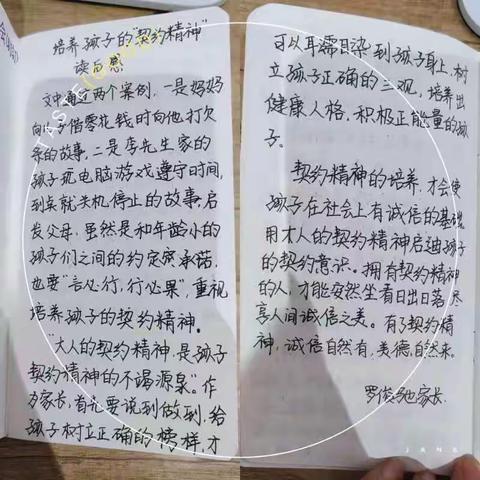 培养孩子的"契约精神"
读后感
文中通过两个案例,一是妈妈
向儿子借零花钱时向他打欠
条的故事,二是李先生家的
孩子玩电脑游戏遵守时间,
到点就关机停止的故事,启
发父母,虽然是和年龄小的
孩子们之间的约定或承诺,
也要"言必行,行必果",重视
培养孩子的契约精神。
"大人的契约精神,是孩子
契约精神的不竭源泉"。作
为家长,首先要说到做到,给
孩子树立正确的榜样,才
可以耳濡目染到孩子身上,树
立孩子正确的三观,培养出
健康人格,积极正能量的孩
子。
契约精神的培养,才会使
孩子在社会上有诚信的基础,
用大人的契约精神启迪孩子
的契约意识。拥有契约精神
的人,才能安然坐看日出日落,尽
享人间诚信之美。有了契约精
神,诚信自然有,美德自然来。
罗俊驰家长
JANE